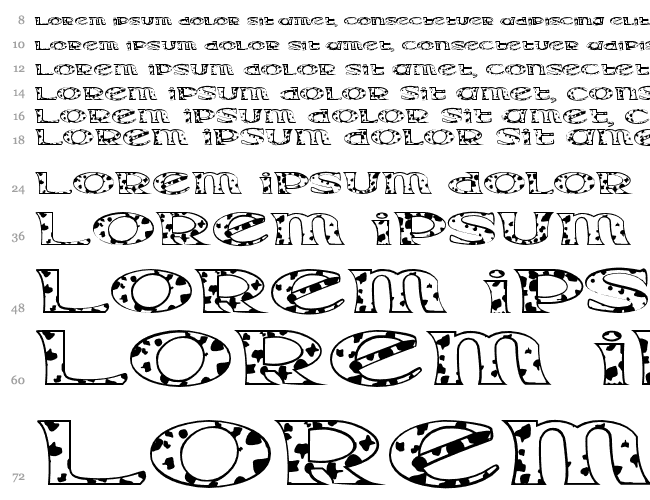 8 Lorem ipsum dolor sit amet, consectetuer adipiscing elit
10 Lorem ipsum dolor sit amet, consectetuer adipis
12 Lorem ipsum dolor sit amet, consectet
14 Lorem ipsum dolor sit amet, cons
16 Lorem ipsum dolor sit amet, c
18 Lorem ipsum dolor sit ame
24 Lorem ipsum dolor
36 Lorem ipsum
48 Lorem ips
60 Lorem i
72 Lorem